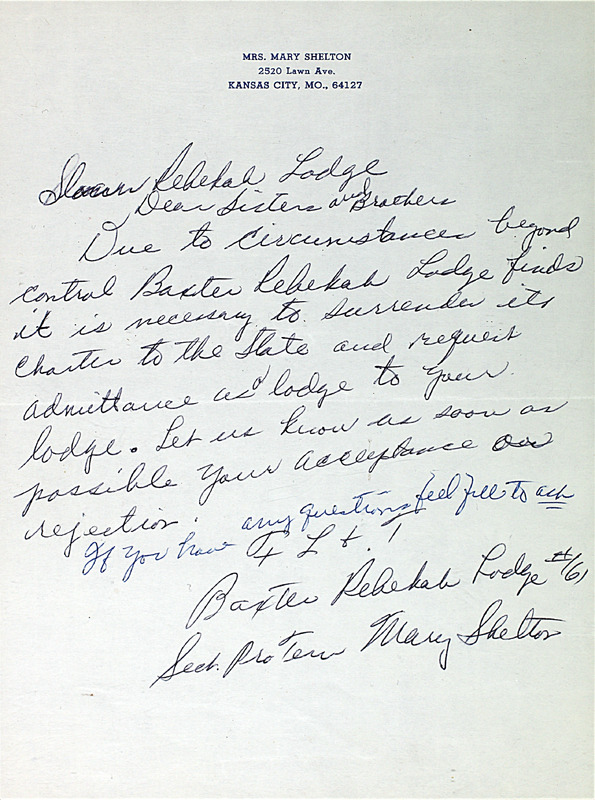 MRS. MARY SHELTON
2520 Lawn Ave.
KANSAS CITY, MO., 64127
Rebekah Lodge
Dear Sisters and Brothers
Due to circumstances beyond
control Baxter Rebekah Lodge finds
it is necessary to surrender its
charter to the State and request
admittance as lodge to your
lodge. Let us know as soon as
possible your acceptance our
rejection.
If you have any questions feel free to ask
F L & T
Baxter Rebekah Lodge #161
Sect. Pro Tem Mary Shelton